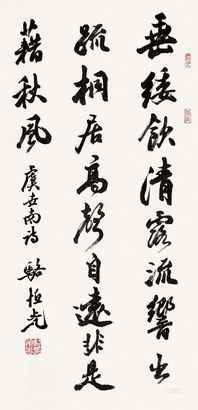 垂緌飲清露流響出
疏桐居高聲自遠非是
藉秋風
虞世南诗 駱恒光